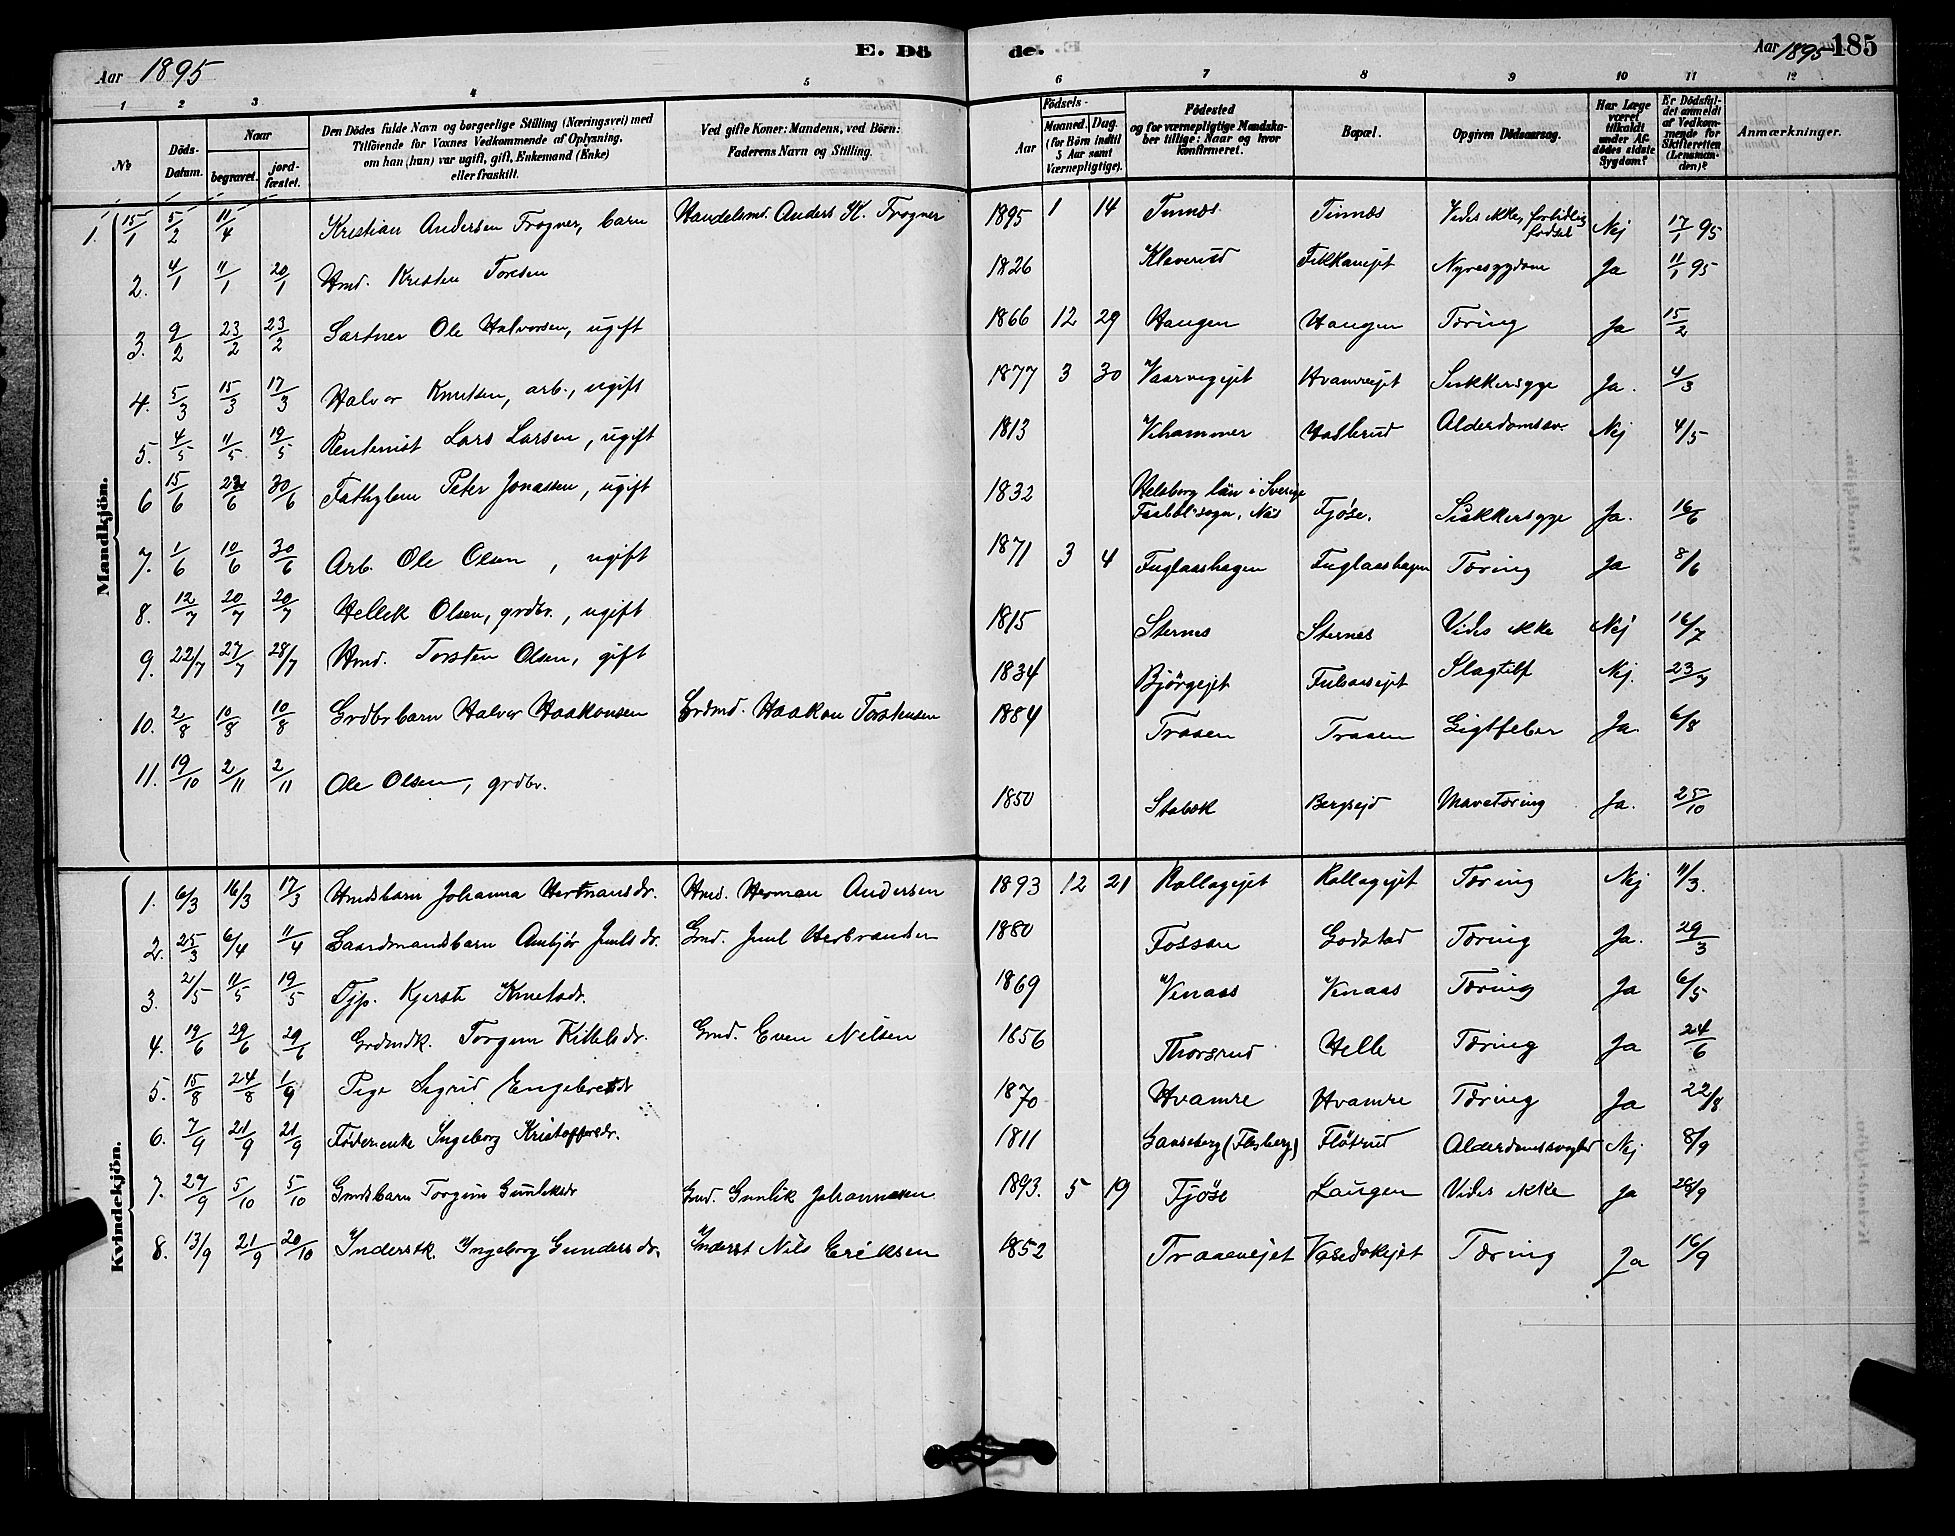 Aar 1895
E. Dö
de.
Aar 1895
185
1 2 3 4 5 6 7 8 9 10 11 12
No
Döds-Datum.
Naar
begravet.
jord-fæstet.
Den Dödes fulde Navn og borgerlige Stilling (Næringsvei) med Tilföiende for Voxnes Vedkommende af Oplysning, om han (hun) var ugift, gift, Enkemand (Enke) eller fraskilt.
Ved gifte Koner: Mandens, ved Börn: Faderens Navn og Stilling.
Födsels-
Aar
Maaned. Dag.
(for Börn indtil 5 Aar samt Værnepligtige).
Födested og for værnepligtige Mandskaber tillige: Naar og hvor konfirmeret.
Bopæl.
Opgiven Dödsaarsag.
Har Læge været tilkaldt under Afdödes sidste Sygdom?
Er Dödsfaldet anmeldt af Vedkommende for Skifteretten (Lensmanden)?
Anmærkninger.
Mandkjön.
1. 15/1 5/2 11/4 Kristian Andersen Frogner, barn Handelsmd. Anders K. Frogner 1895 1 14 Tinnæs Tinnæs Vides ikke, forbidlig fødsel Nej 17/1 95
2. 4/1 11/1 20/1 Hmd. Kristen Toresen 1826 Klaverud Nyresygdom Ja 11/1 95
3. 9/2 23/2 23/2 Ole Halvorsen, ugift 1866 12 29 Haugen Haugen Tæring Ja 15/2
4. 5/3 15/3 17/3 Halvor Knutsen, arb., ugift 1877 3 30 Vaarvigejet Hvamreejet Sukkersyge Ja. 4/3
5. 4/5 11/5 19/5 Rentenist Lars Larsen, ugift 1813 Vihammer Haslerud Alderdomssv. Nej 4/5
6 15/6 23/6 30/6 Fattiglem Peter Jonassen, ugift 1832 Helsborg län i Sverige Fjøse. Sukkersyge Ja. 16/6
7. 1/6 10/6 30/6 Arb. Ole Olsen, ugift 1871 3 4 Fuglaashagen Fuglaashagen Tæring Ja 8/6
8. 12/7 20/7 20/7 Hellek Olsen, grdbr., ugift 1815 Sternes Sternes Vides ikke Nej 16/7
9. 22/7 27/7 28/7 Hmd. Torsten Olsen, gift 1834 Bjørgejet Slagtilf Nej. 23/7
10. 2/8 10/8 10/8 Grdbrbarn Halvor Haakonsen Grdmd. Haakon Torstensen 1884 Traaen Traaen Gigtfeber Ja. 6/8
11. 19/10 2/11 2/11 Ole Olsen, grdbr. 1850 Stabæk Bergsejd Mavetæring Ja. 25/10
Kvindekjön.
1. 6/3 16/3 17/3 Hmdsbarn Johanna Hermansdr. Hmd. Herman Andersen 1893 12 21 Rollagejet Rollagejet Tæring Nej 11/3.
2. 25/3 6/4 11/4 Gaardmandsbarn Anbjør Juulsdr. Gmd. Juul Herbrandsen 1880 Fossan Godstad Tæring Ja. 29/3
3. 2/5 11/5 19/5 Tjp. Kjersti Knutsdr. 1869 Venaas Venaas Tæring Ja 6/5
4. 19/6 29/6 29/6 Grdmdk. Torgun Kittelsdr. Gmd. Even Nilsen 1856 Thorsrud Helle Tæring Ja 24/6
5. 15/8 24/8 1/9 Pige Sigrid Engebretsdr 1870 Hvamre Hvamre Tæring Ja 22/8
6. 7/9 21/9 21/9 Føderenke Ingeborg Kristoffersdr. 1811 Gaaseberg (Flesberg) Fløtrud Alderdomssvaghed Nej 8/9
7. 27/9 5/10 5/10 Gmdsbarn Torgun Gunleksdr Gmd. Gunlik Johannesen 1893. 5 19 Fjøse Laugen Vides ikke Ja 28/9
8. 13/9 21/9 20/10 Inderstk. Ingeborg Gundersdr. Inderst Nils Eriksen 1852 Traaenejet Tæring Ja 16/9